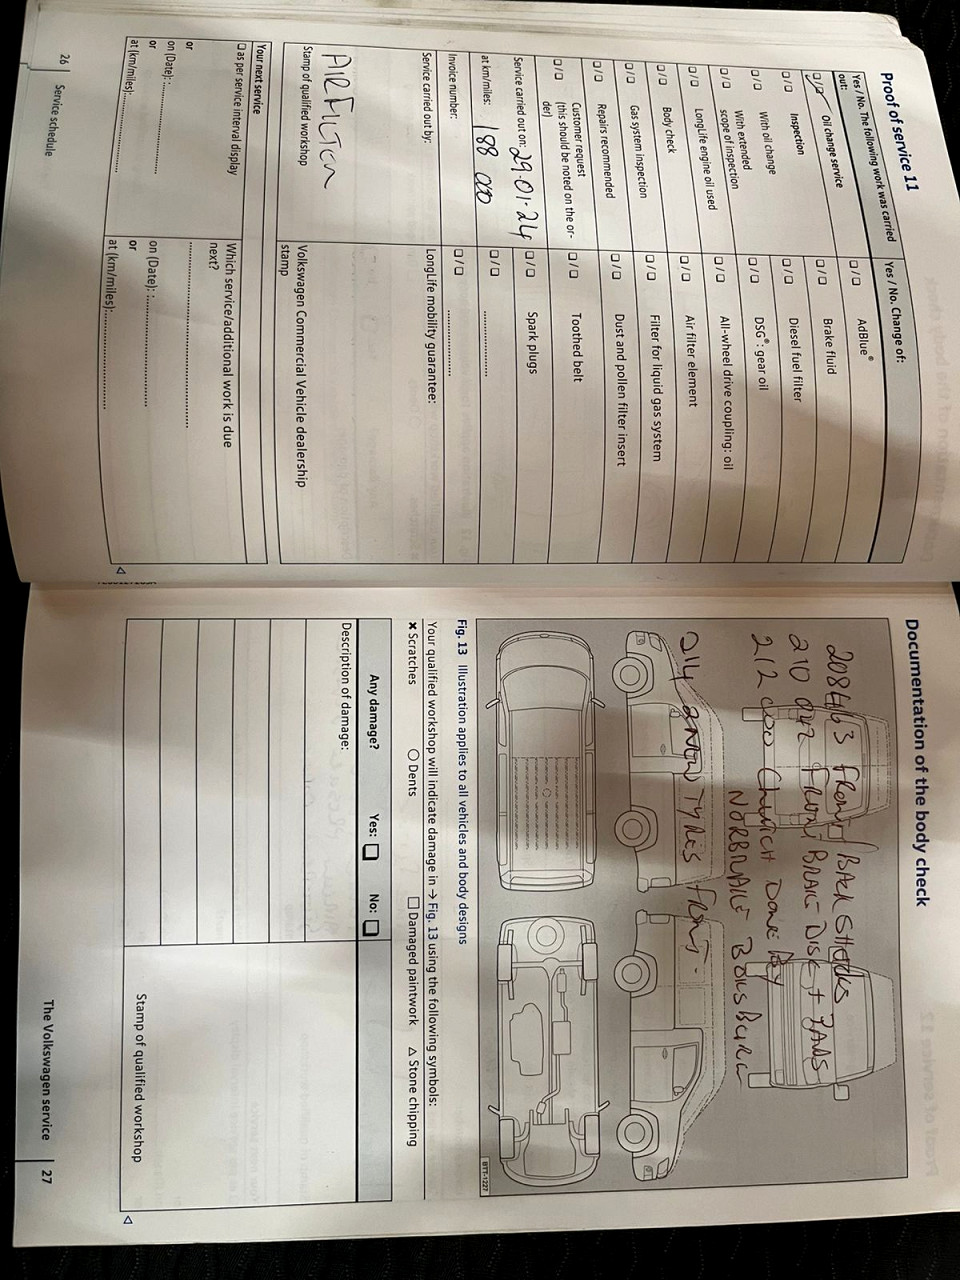 Proof of service 11
Yes / No. The following work was carried out:
Yes / No. Change of:
☐/☐ Oil change service
☐/☐ AdBlue®
☐/☐ Inspection
☐/☐ Brake fluid
☐/☐ With oil change
☐/☐ Diesel fuel filter
☐/☐ With extended scope of inspection
☐/☐ DSG®: gear oil
☐/☐ LongLife engine oil used
☐/☐ All-wheel drive coupling: oil
☐/☐ Body check
☐/☐ Air filter element
☐/☐ Gas system inspection
☐/☐ Filter for liquid gas system
☐/☐ Repairs recommended
☐/☐ Dust and pollen filter insert
☐/☐ Customer request
(this should be noted on the or-
der)
☐/☐ Toothed belt
Service carried out on: 29.01.24
☐/☐ Spark plugs
at km/miles: 188 000
☐/☐ ....................
Invoice number:
☐/☐ ....................
Service carried out by:
LongLife mobility guarantee:
Stamp of qualified workshop
Volkswagen Commercial Vehicle dealership
stamp
Your next service
☐ as per service interval display
or
on (Date): ....................
or
at (km/miles): ....................
Which service/additional work is due
next?
....................
on (Date): ....................
or
at (km/miles): ....................
26 | Service schedule
Documentation of the body check
208463 FRONT BACK SHOCKS
210 942 FRONT BRAKE DISK + PADS
212 000 CLUTCH DONE BY
2 NEW TYRES FRONT.
BTT-1227
Fig. 13 Illustration applies to all vehicles and body designs
Your qualified workshop will indicate damage in → Fig. 13 using the following symbols:
✖ Scratches ○ Dents ☐ Damaged paintwork △ Stone chipping
Any damage? Yes: ☐ No: ☐
Description of damage:
Stamp of qualified workshop
The Volkswagen service | 27